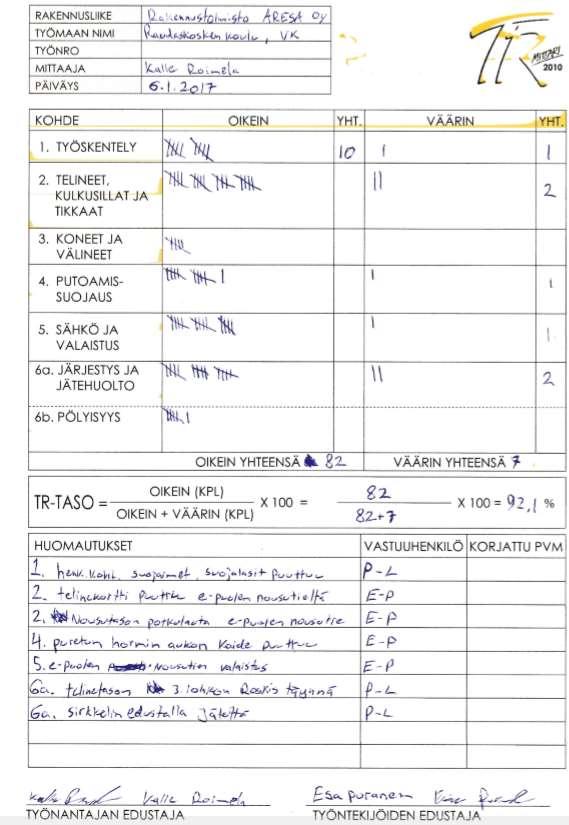 RAKENNUSLIIKE Rakennustoimisto ARESA OY
TYÖMAAN NIMI koulu, VK
TYÖNRO
MITTAAJA Kalle Roimela
PÄIVÄYS 6.1.2017
TR MITTARI 2010
KOHDE OIKEIN YHT. VÄÄRIN YHT.
1. TYÖSKENTELY 10 | 1
2. TELINEET, || 2
KULKUSILLAT JA
TIKKAAT
3. KONEET JA
VÄLINEET
4. PUTOAMIS- | 1
SUOJAUS
5. SÄHKÖ JA | 1
VALAISTUS
6a. JÄRJESTYS JA || 2
JÄTEHUOLTO
6b. PÖLYISYYS
OIKEIN YHTEENSÄ 82 VÄÄRIN YHTEENSÄ 7
TR-TASO = OIKEIN (KPL) X 100 = 82 X 100 = 92,1 %
OIKEIN + VÄÄRIN (KPL) 82+7
HUOMAUTUKSET VASTUUHENKILÖ KORJATTU PVM
1. henk.koht. suojaimet, suojalasit puuttuu P-L
2. telinekortti puuttuu e-puolen nousutieltä E-P
2. Nousutason potkulauta e-puolen nousutie E-P
4. puretun hormin aukon kaide puuttuu E-P
5. e-puolen Nousutien valaistus E-P
6a. telinetason 3. lohkon Roskis täynnä P-L
6a. sirkkelin edustalla jätettä P-L
Kalle Roimela Esa Puranen
TYÖNANTAJAN EDUSTAJA TYÖNTEKIJÖIDEN EDUSTAJA